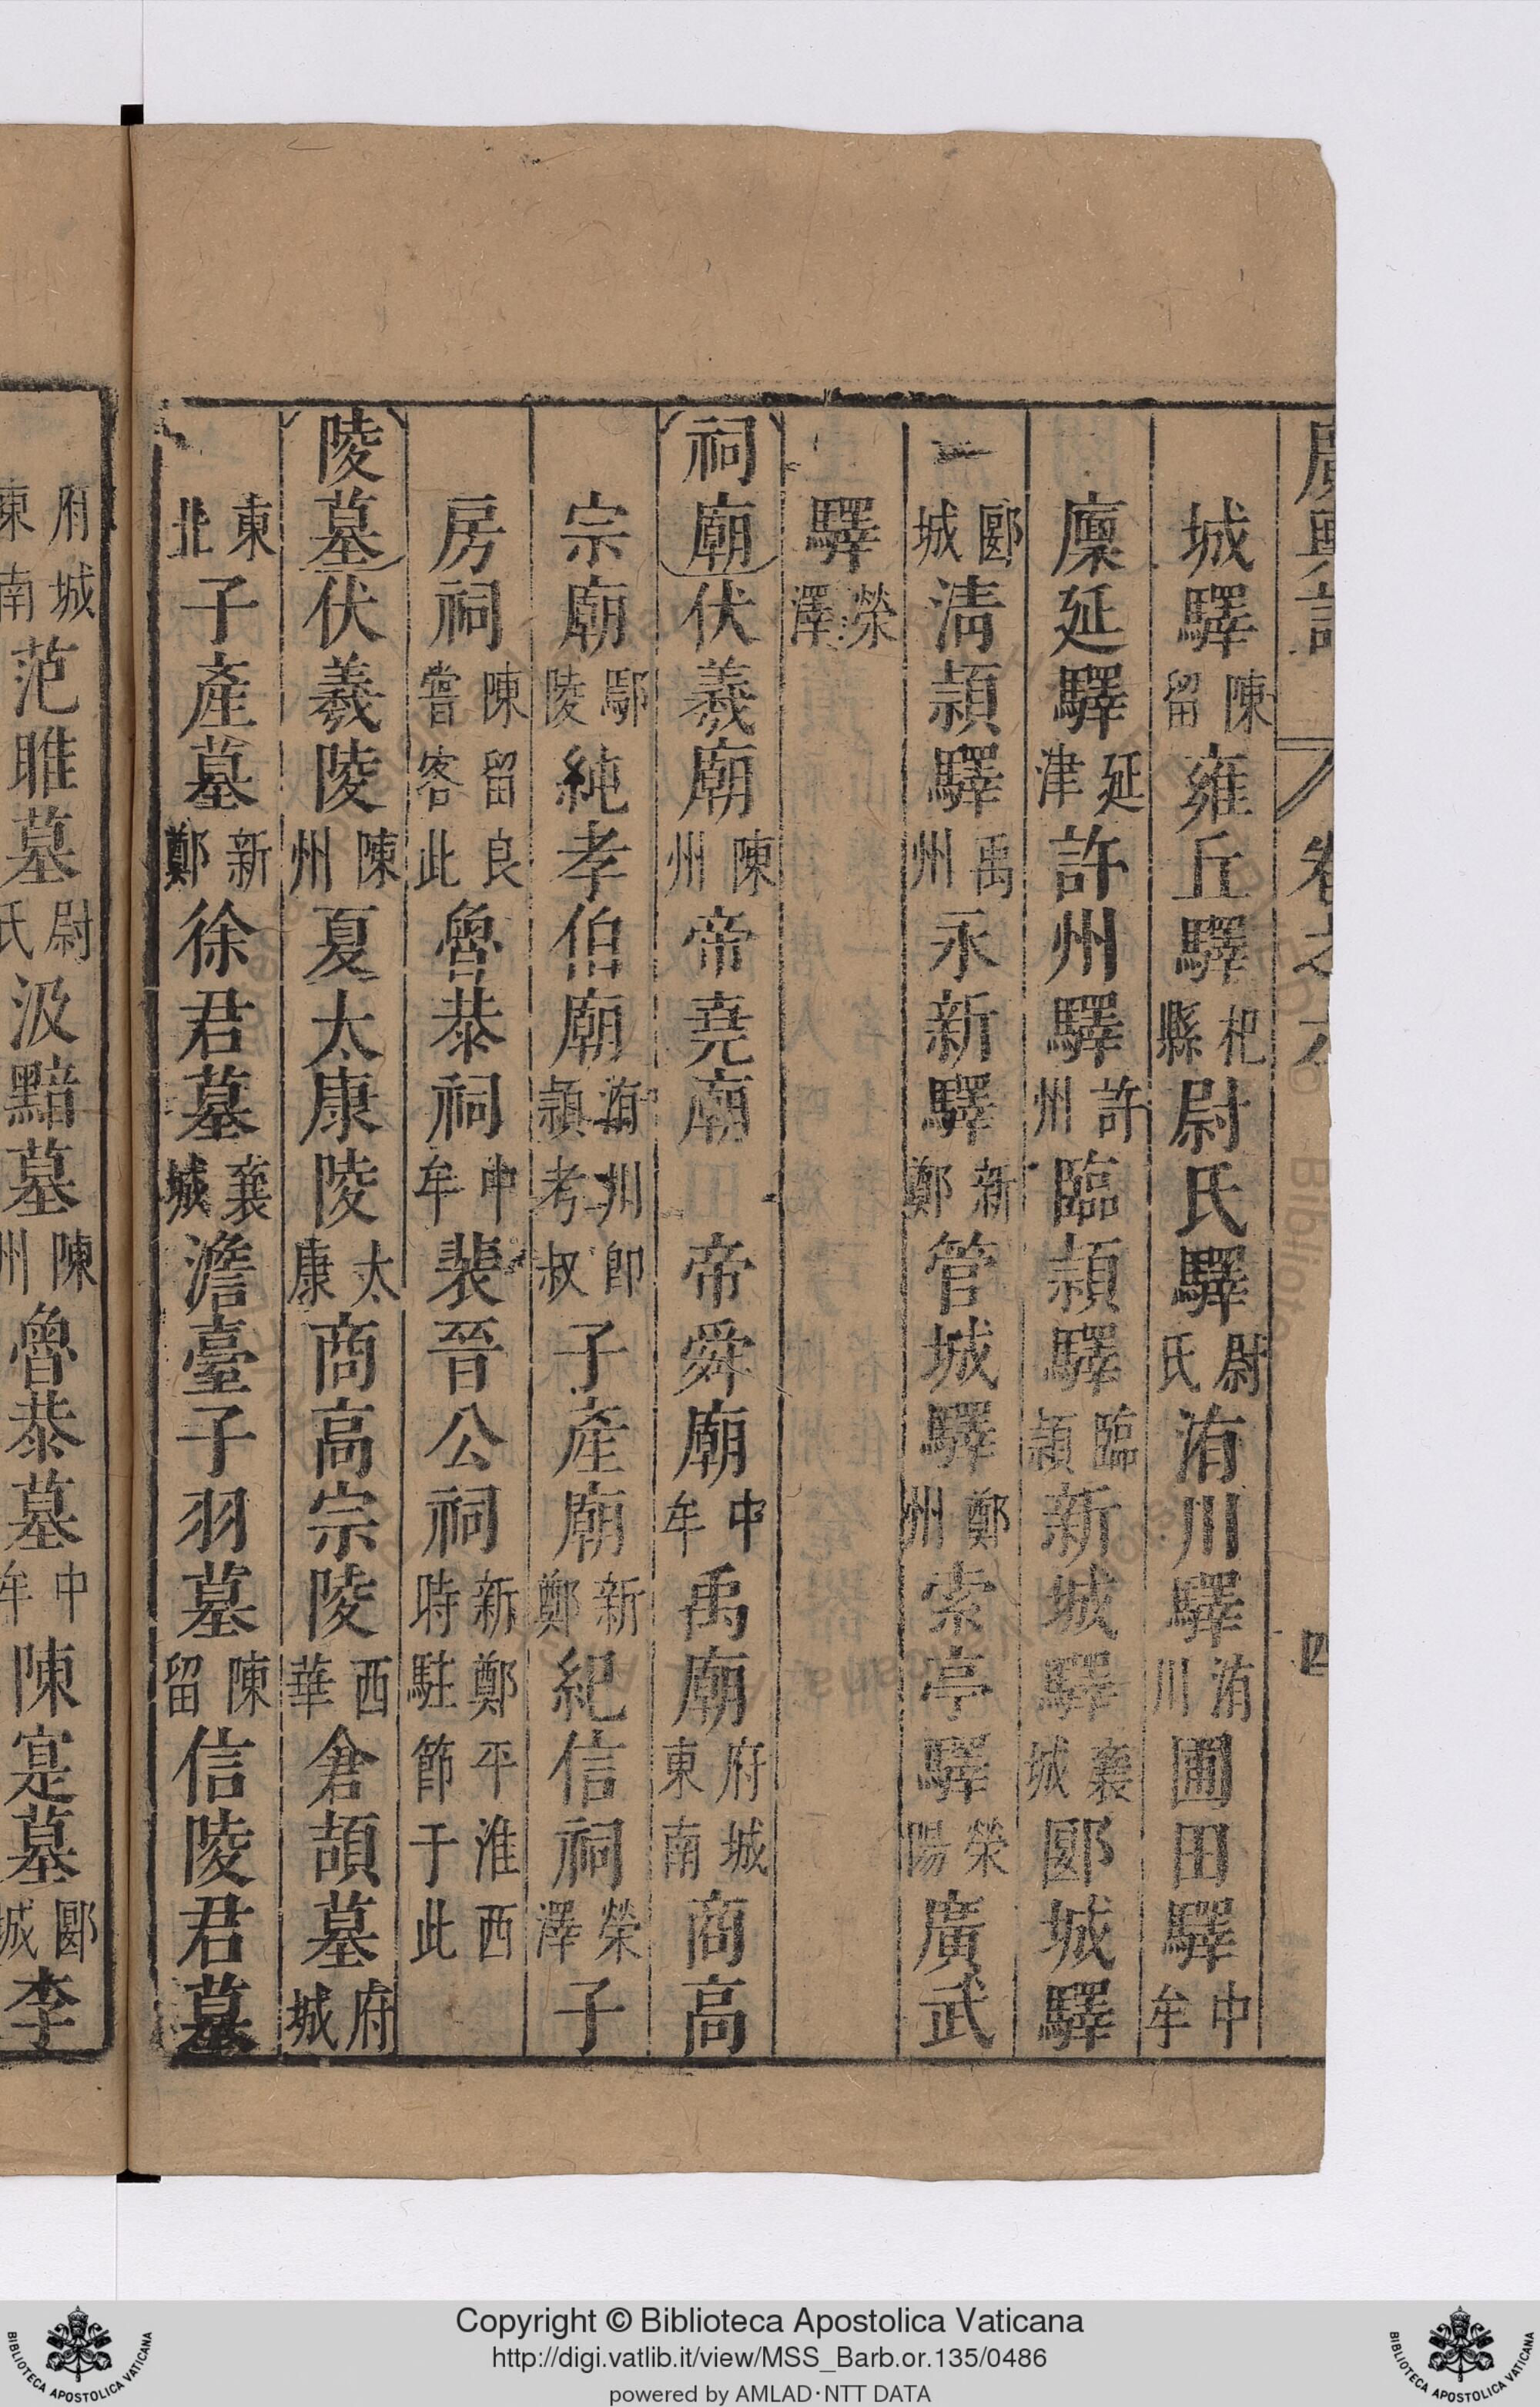 廣輿記 卷之六 四
城驛陳留雍丘驛杞縣尉氏驛尉氏洧川驛洧川圃田驛中牟
廩延驛延津許州驛許州臨潁驛臨潁新城驛襄城郾城驛
郾城清潁驛禹州永新驛新鄭管城驛鄭州索亭驛滎陽廣武
驛滎澤
祠廟伏羲廟陳州帝堯廟 帝舜廟中牟禹廟府城東南商高
宗廟鄢陵純孝伯廟洧川即潁考叔子產廟新鄭紀信祠滎澤子
房祠陳留良嘗客此魯恭祠中牟裴晉公祠新鄭平淮西時駐節于此
陵墓伏羲陵陳州夏太康陵太康商高宗陵西華倉頡墓府城
東北子產墓新鄭徐君墓襄城澹臺子羽墓陳留信陵君墓
府城東南范雎墓尉氏汲黯墓陳州魯恭墓中牟陳寔墓郾城李
Copyright © Biblioteca Apostolica Vaticana
http://digi.vatlib.it/view/MSS_Barb.or.135/0486
powered by AMLAD·NTT DATA
BIBLIOTECA APOSTOLICA VATICANA
BIBLIOTECA APOSTOLICA VATICANA